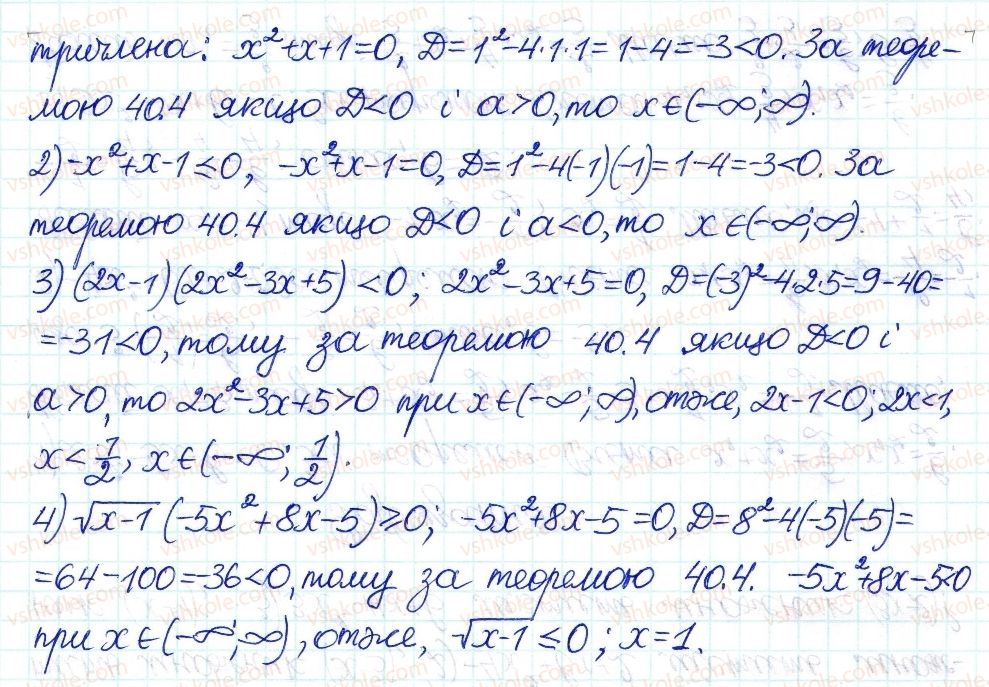 тричлена: x²+x+1=0, D=1²-4·1·1=1-4=-3<0. За теоре-
мою 40.4 якщо D<0 і a>0, то x∈(-∞;∞).
2) -x²+x-1≤0, -x²+x-1=0, D=1²-4(-1)(-1)=1-4=-3<0. За
теоремою 40.4 якщо D<0 і a<0, то x∈(-∞;∞).
3) (2x-1)(2x²-3x+5)<0; 2x²-3x+5=0, D=(-3)²-4·2·5=9-40=
=-31<0, тому за теоремою 40.4 якщо D<0 і
a>0, то 2x²-3x+5>0 при x∈(-∞;∞), отже, 2x-1<0; 2x<1,
x<1/2, x∈(-∞; 1/2).
4) √(x-1) (-5x²+8x-5)≥0; -5x²+8x-5=0, D=8²-4(-5)(-5)=
=64-100=-36<0, тому за теоремою 40.4. -5x²+8x-5<0
при x∈(-∞;∞), отже, √(x-1) ≤0; x=1.